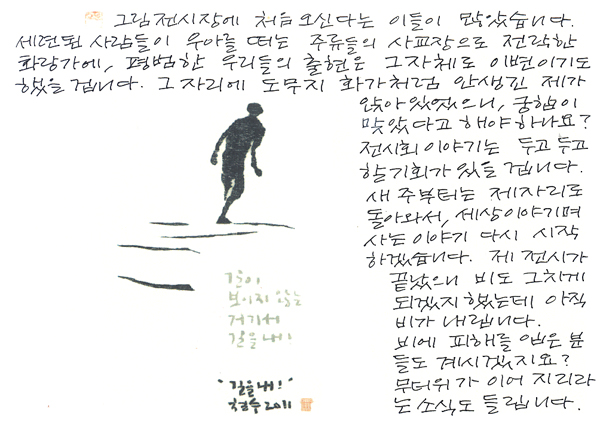 그림 전시장에 처음 오신다는 이들이 많았습니다.
세련된 사람들이 우아를 떠는 주류들의 사교장으로 전락한
화랑가에, 평범한 우리들의 출현은 그 자체로 이변이기도
했을 겁니다. 그 자리에 도무지 화가처럼 안생긴 제가
앉아 있었으니, 궁합이
맞았다고 해야 하나요?
전시회 이야기는 두고 두고
할 기회가 있을 겁니다.
새 주부터는 제자리로
돌아와서, 세상이야기며
사는 이야기 다시 시작
하겠습니다. 제 전시가
끝났으니 비도 그치게
되겠지 했는데 아직
비가 내립니다.
비에 피해를 입은 분
들도 계시겠지요?
무더위가 이어지리라
는 소식도 들립니다.
길이
보이지 않는
거기서
길을 내!
"길을 내!"
철수 2011